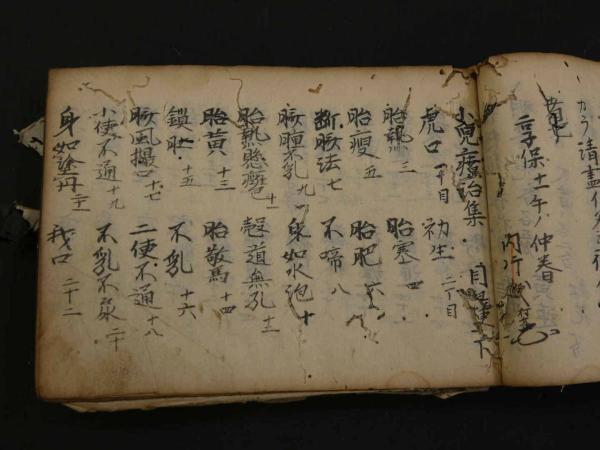 カラ清盡
享保十一午ノ仲春
小兒療治集 目録 下
虎口 一丁目 初生 二丁目
胎熱 三 胎寒 四
胎瘦 五 胎肥 六
断臍法 七 不啼 八
臍腫不乳 九 身如水泡 十
胎熱懸癰 十一 穀道無孔 十二
胎黃 十三 胎驚 十四
鎖肚 十五 不乳 十六
臍風撮口 十七 二便不通 十八
小便不通 十九 不乳不尿 二十
身如塗丹 二十一 我口 二十二